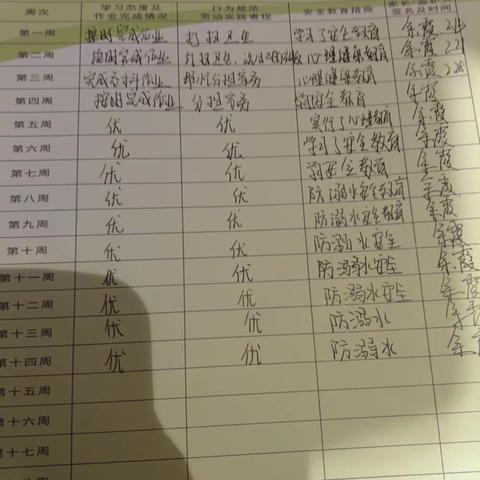 周次 学习态度及作业完成情况 行为规范劳动实践表现 安全教育措施 家长/监护人签名及时间
第一周 按时完成作业 打扫卫生 学习了安全教育 余霞 2.15
第二周 按时完成作业 打扫卫生 心理健康教育 余霞 2.21
第三周 完成各科作业 帮忙分担家务 心理健康教育 余霞 2.28
第四周 按时完成作业 分担家务 安全教育 余霞
第五周 优 优 实行了心理教育 余霞
第六周 优 优 学习了安全教育 余霞
第七周 优 优 安全教育 余霞
第八周 优 优 防溺水安全教育 余霞
第九周 优 优 防溺水安全教育 余霞
第十周 优 优 防溺水安全 余霞
第十一周 优 优 防溺水安全 余霞
第十二周 优 优 防溺水安全 余霞
第十三周 优 优 防溺水 余
第十四周 优 优 防溺水 余
第十五周
第十六周
第十七周